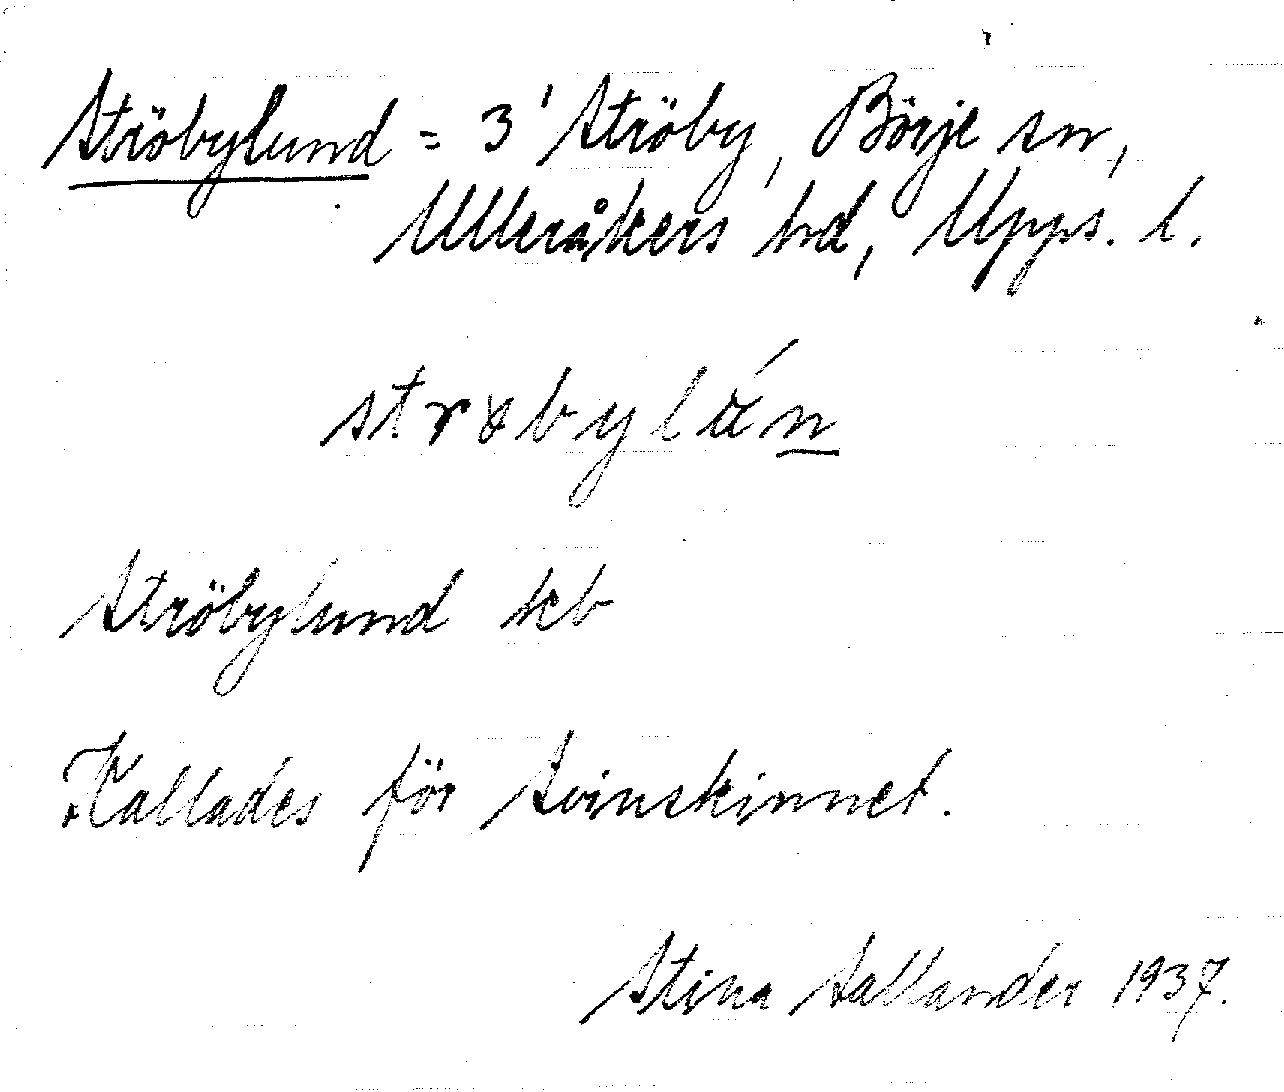 Ströbylund = 3' Ströby, Börje sn,
Ulleråkers hd, Upps. l.
Ströbylund kb
Kallades för Svinskinnet.
Stina Sallander 1937.